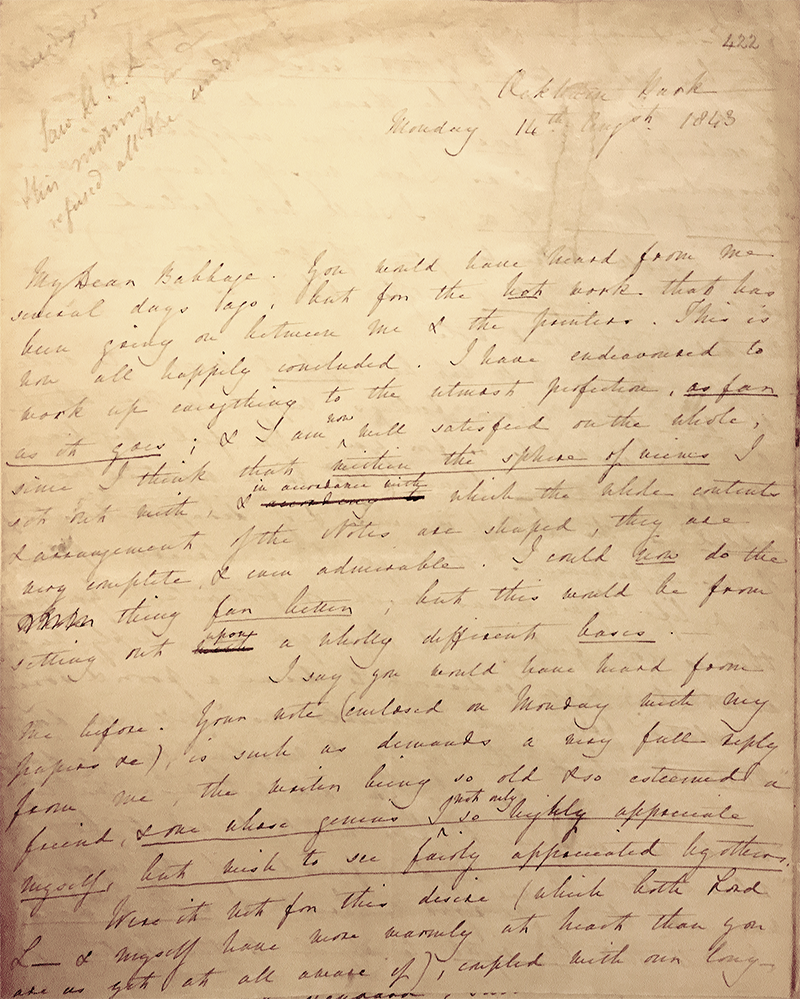 422
Saw A. A. L.
this morning and
refused all the conditions
Ockham Park
Monday 14th Augst. 1843
My Dear Babbage. You would have heard from me
several days ago, but for the hot work that has
been going on between me & the printers. This is
now all happily concluded. I have endeavoured to
work up everything to the utmost perfection, as far
as it goes; & I am now well satisfied on the whole,
since I think that within the sphere of views I
set out with, & in accordance with which the whole contents
& arrangement of the Notes are shaped, they are
very complete, & even admirable. I could now do the
thing far better; but this would be from
setting out upon a wholly different basis.
I say you would have heard from
me before. Your note (enclosed on Monday with my
papers &c), is such as demands a very full reply
from me, the writer being so old & so esteemed a
friend, & one whose genius I not only so highly appreciate
myself, but wish to see fairly appreciated by others.
Were it not for this desire (which both Lord
L— & myself have more warmly at heart than you
are as yet at all aware of), coupled with our long-